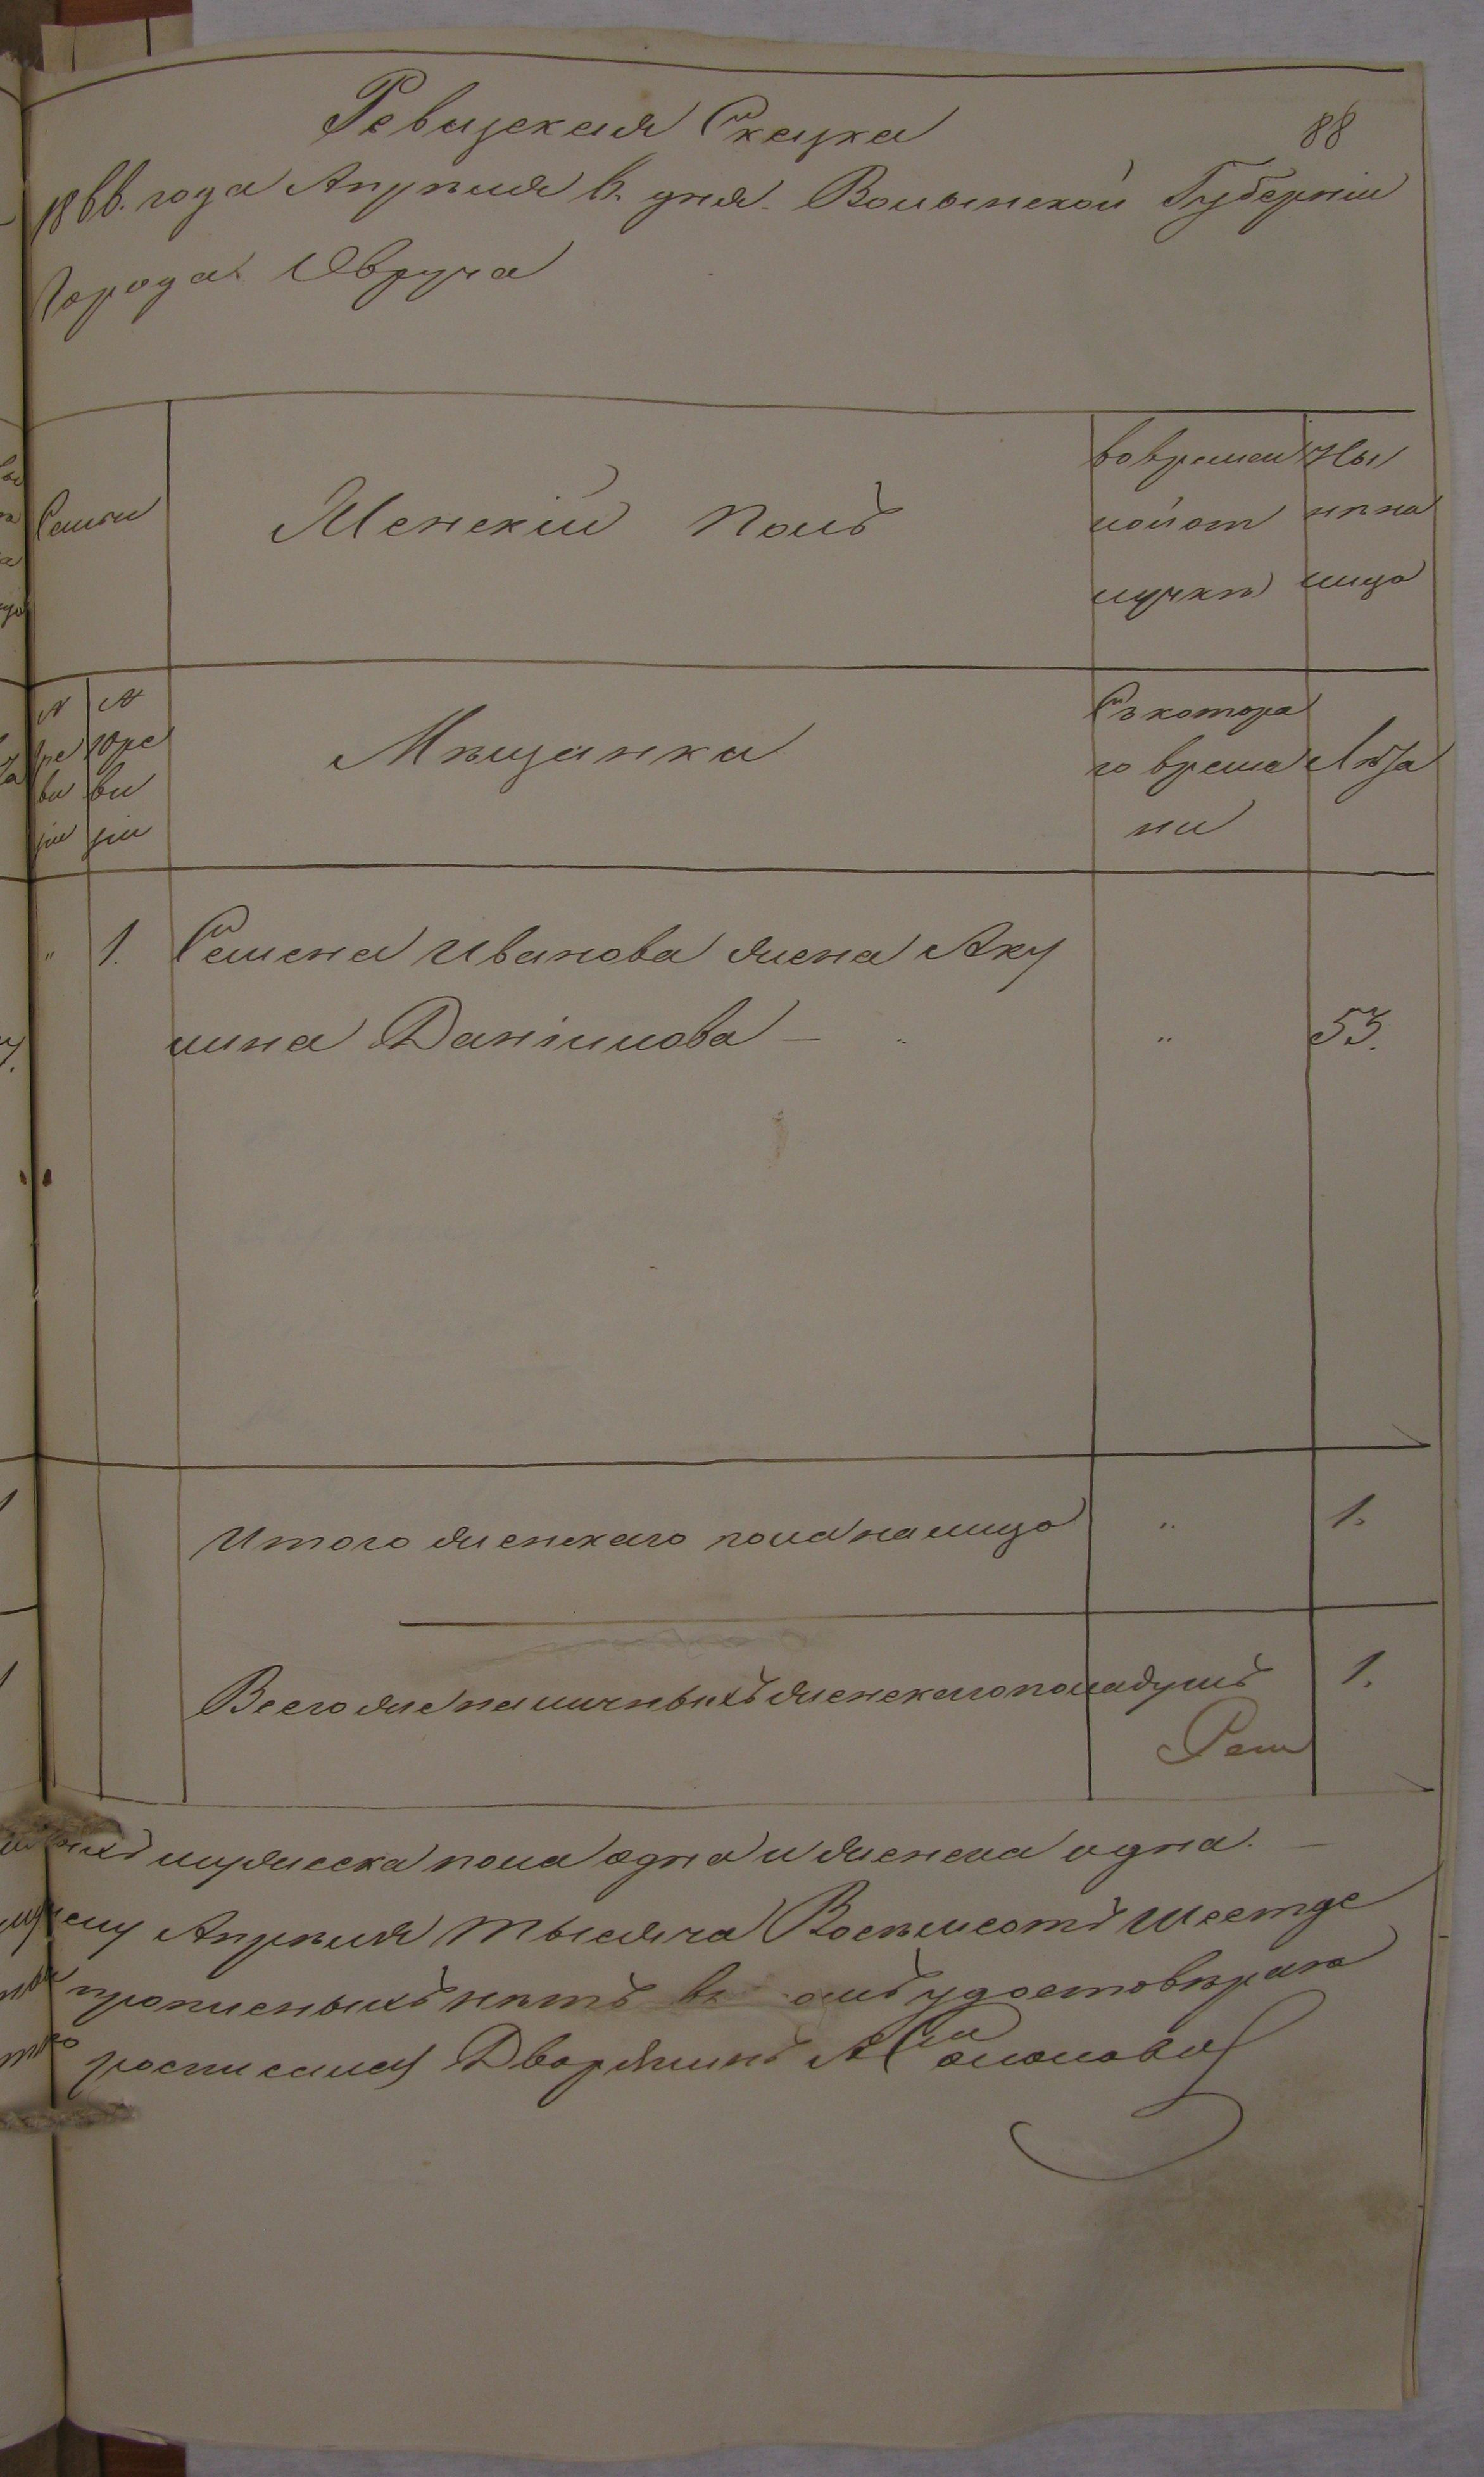 88
Ревизская Сказка
1866. года Апрѣля 12. дня. Волынской Губерніи
Города Овруча
Семьи
Женскій Полъ
во времен
ной от
лучкѣ
Ны
нѣ на
лицо
№
ре
ви
зіи
№
10 ре
ви
зіи
Мѣщанка
Съ котора
го време
ни
Лѣта
" 1. Семена Иванова жена Аку
лина Данілова — " " 53.
Итого женскаго пола на лицо " 1.
Всего же наличныхъ женскаго пола душъ 1.
мужеска пола одна и женска одна. —
Апрѣля тысяча Восемсотъ шестде
прописныхъ нѣтъ удостовѣраю
росписался Дворянинъ А